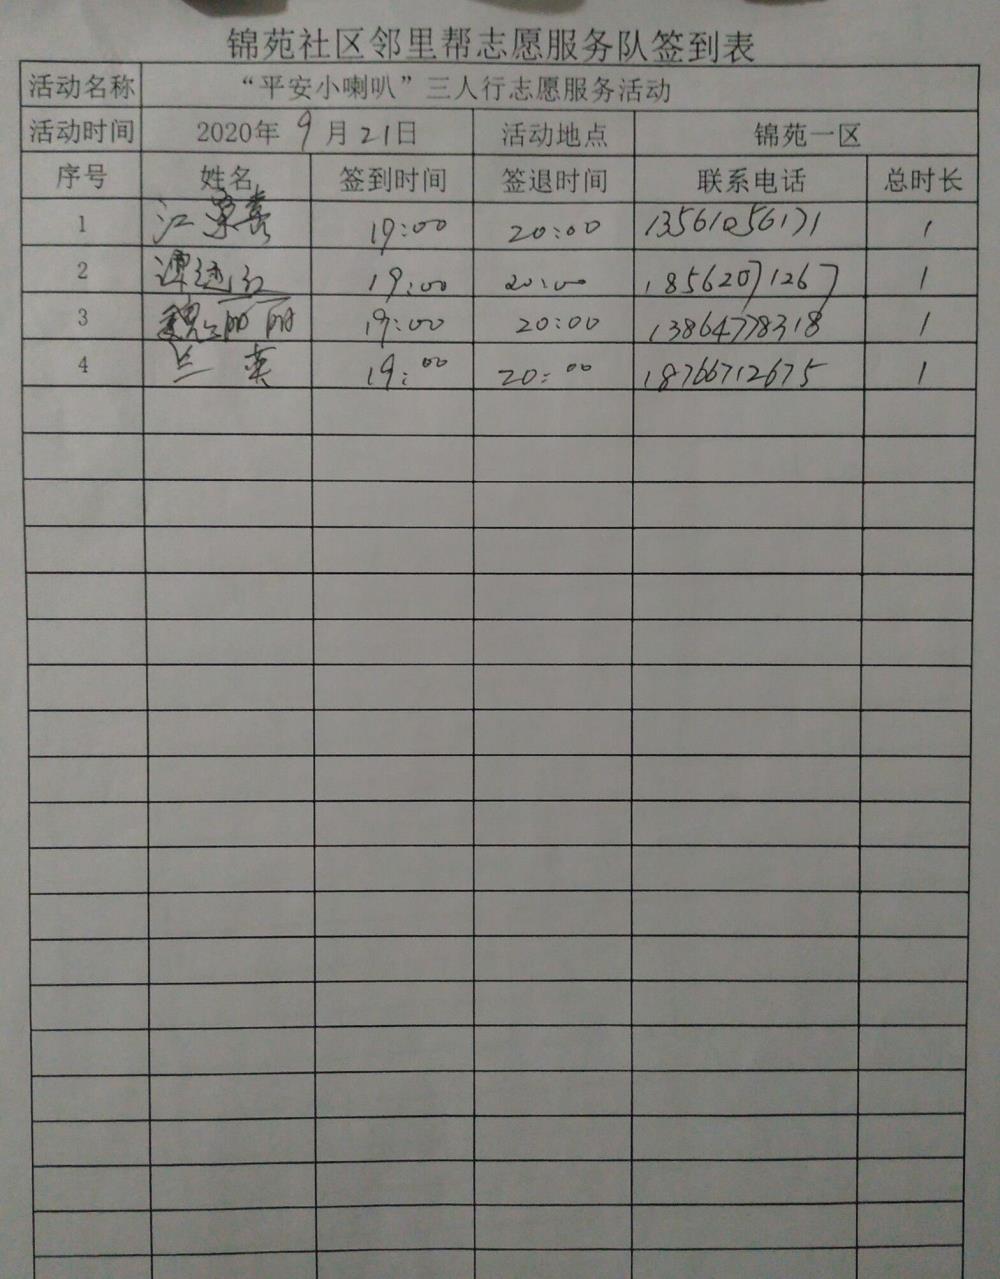 锦苑社区邻里帮志愿服务队签到表
活动名称 “平安小喇叭”三人行志愿服务活动
活动时间 2020年9月21日 活动地点 锦苑一区
序号 姓名 签到时间 签退时间 联系电话 总时长
1 江 19:00 20:00 13561056171 1
2 谭 红 19:00 20:00 18562071267 1
3 魏丽丽 19:00 20:00 13864778318 1
4 兰英 19:00 20:00 18766712675 1